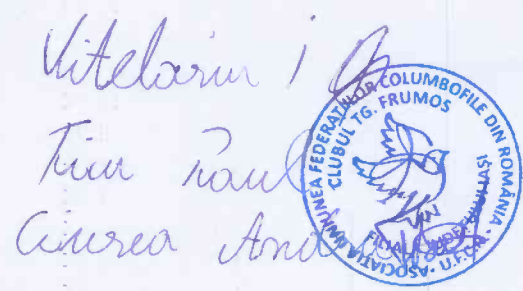 Vitelariu I
Paul
Ciurea And
ASOCIAȚIA UNIUNEA FEDERAȚIILOR COLUMBOFILE DIN ROMÂNIA · U.F.C.R. ·
CLUBUL TG. FRUMOS
FILIALA JUDEȚEANĂ IAȘI